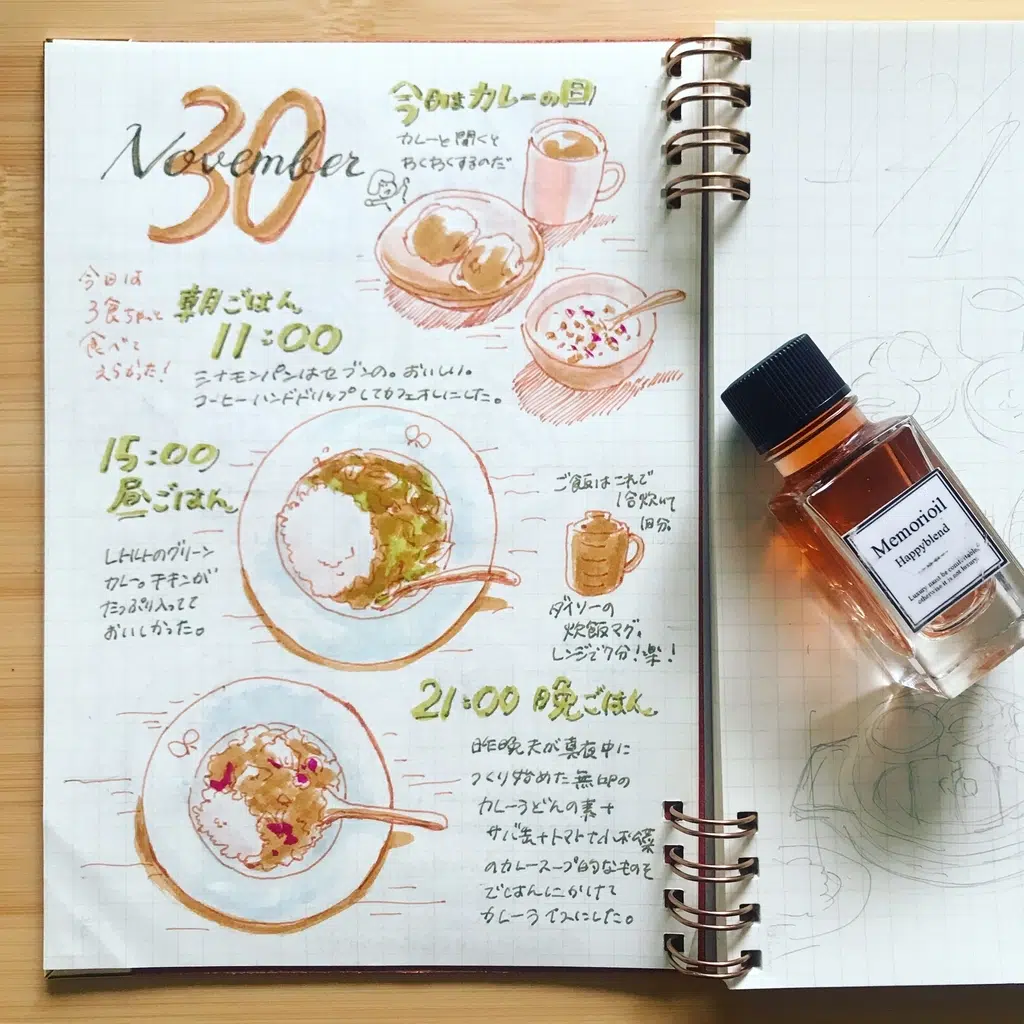 30
November
今日はカレーの日
カレーと聞くと
わくわくするのだ
今日は
3食ちゃんと
食べて
えらかった!
朝ごはん
11:00
シナモンパンはセブンの。おいしい。
コーヒーハンドドリップしてカフェオレにした。
15:00
昼ごはん
レトルトのグリーン
カレー。チキンが
たっぷり入ってて
おいしかった。
ご飯はこれで
1合炊いて
ダイソーの
炊飯マグ。
レンジで7分!楽!
21:00 晩ごはん
昨晩夫が真夜中に
つくり始めた無印の
カレーうどんの素+
サバ缶+トマト
のカレースープ的なものを
ごはんにかけて
カレーライスにした。
Memorioil
Happyblend
Luxury must be comfortable,
otherwise it is not luxury.